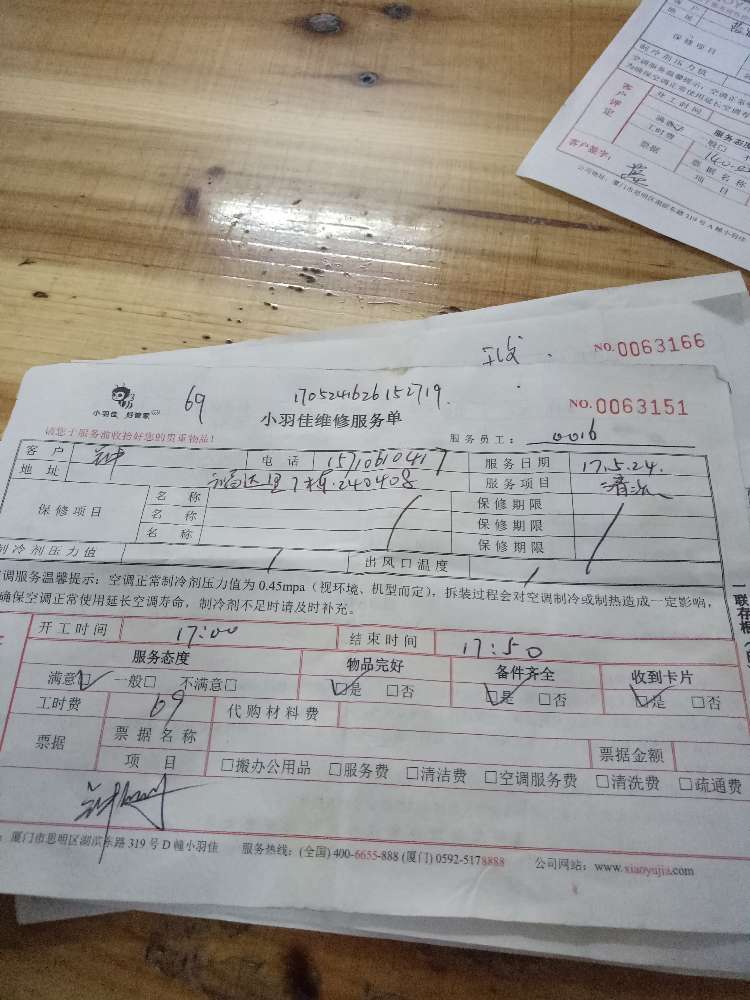 客户
地址
保修项目
制冷剂压力值
客户评定
开工时间
满意
服务态度
工时费
票据
票据名称
项目
客户签字:
公司地址:厦门市思明区湖滨东路 319 号 A 幢小羽佳
NO.0063166
小羽佳 好管家
69
1705241626152719.
NO.0063151
小羽佳维修服务单
请您于服务前收拾好您的贵重物品!
服务员工: 0016
客户 电话 15710610417 服务日期 17.5.24.
地址 福达里7栋.240408 服务项目 清洗
保修项目 名称 保修期限
名称 保修期限
名称 保修期限
制冷剂压力值 / 出风口温度 /
空调服务温馨提示:空调正常制冷剂压力值为 0.45mpa(视环境、机型而定),拆装过程会对空调制冷或制热造成一定影响,
确保空调正常使用延长空调寿命,制冷剂不足时请及时补充。
开工时间 17:00 结束时间 17:50
服务态度 物品完好 备件齐全 收到卡片
满意☑ 一般□ 不满意□ ☑是 □否 ☑是 □否 ☑是 □否
工时费 69 代购材料费
票据 票据名称 票据金额
项目 □搬办公用品 □服务费 □清洁费 □空调服务费 □清洗费 □疏通费
:厦门市思明区湖滨东路 319 号 D 幢小羽佳 服务热线:(全国) 400-6655-888 (厦门) 0592-5178888 公司网站:www.xiaoyujia.com
一联存根